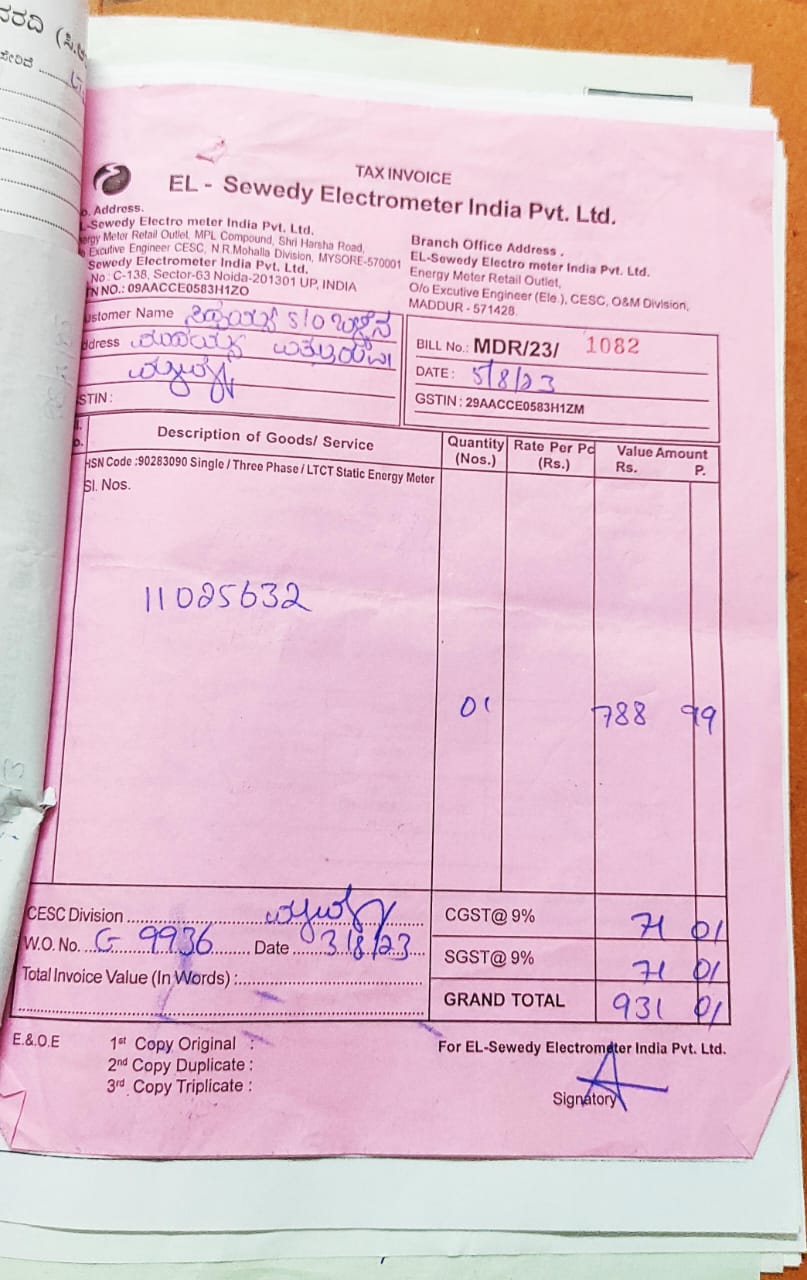 TAX INVOICE
EL - Sewedy Electrometer India Pvt. Ltd.
Address.
-Sewedy Electro meter India Pvt. Ltd.
ergy Meter Retail Outlet, MPL Compound, Shri Harsha Road,
Excutive Engineer CESC, N.R.Mohalla Division, MYSORE-570001
Sewedy Electrometer India Pvt. Ltd.
No : C-138, Sector-63 Noida-201301 UP, INDIA
N NO.: 09AACCE0583H1ZO
Branch Office Address .
EL-Sewedy Electro meter India Pvt. Ltd.
Energy Meter Retail Outlet,
O/o Excutive Engineer (Ele.), CESC, O&M Division,
MADDUR - 571428.
ustomer Name S/O
ddress
STIN :
BILL No.: MDR/23/ 1082
DATE : 5/8/23
GSTIN : 29AACCE0583H1ZM
Description of Goods/ Service
Quantity (Nos.)
Rate Per Pc (Rs.)
Value Amount
Rs. P.
HSN Code :90283090 Single / Three Phase / LTCT Static Energy Meter
Sl. Nos.
11025632
01 788 99
CESC Division
W.O. No. G 9936 Date 3/8/23
Total Invoice Value (In Words) :
CGST@ 9% 71 01
SGST@ 9% 71 01
GRAND TOTAL 931 01
E.&.O.E
1st Copy Original :
2nd Copy Duplicate :
3rd Copy Triplicate :
For EL-Sewedy Electrometer India Pvt. Ltd.
Signatory